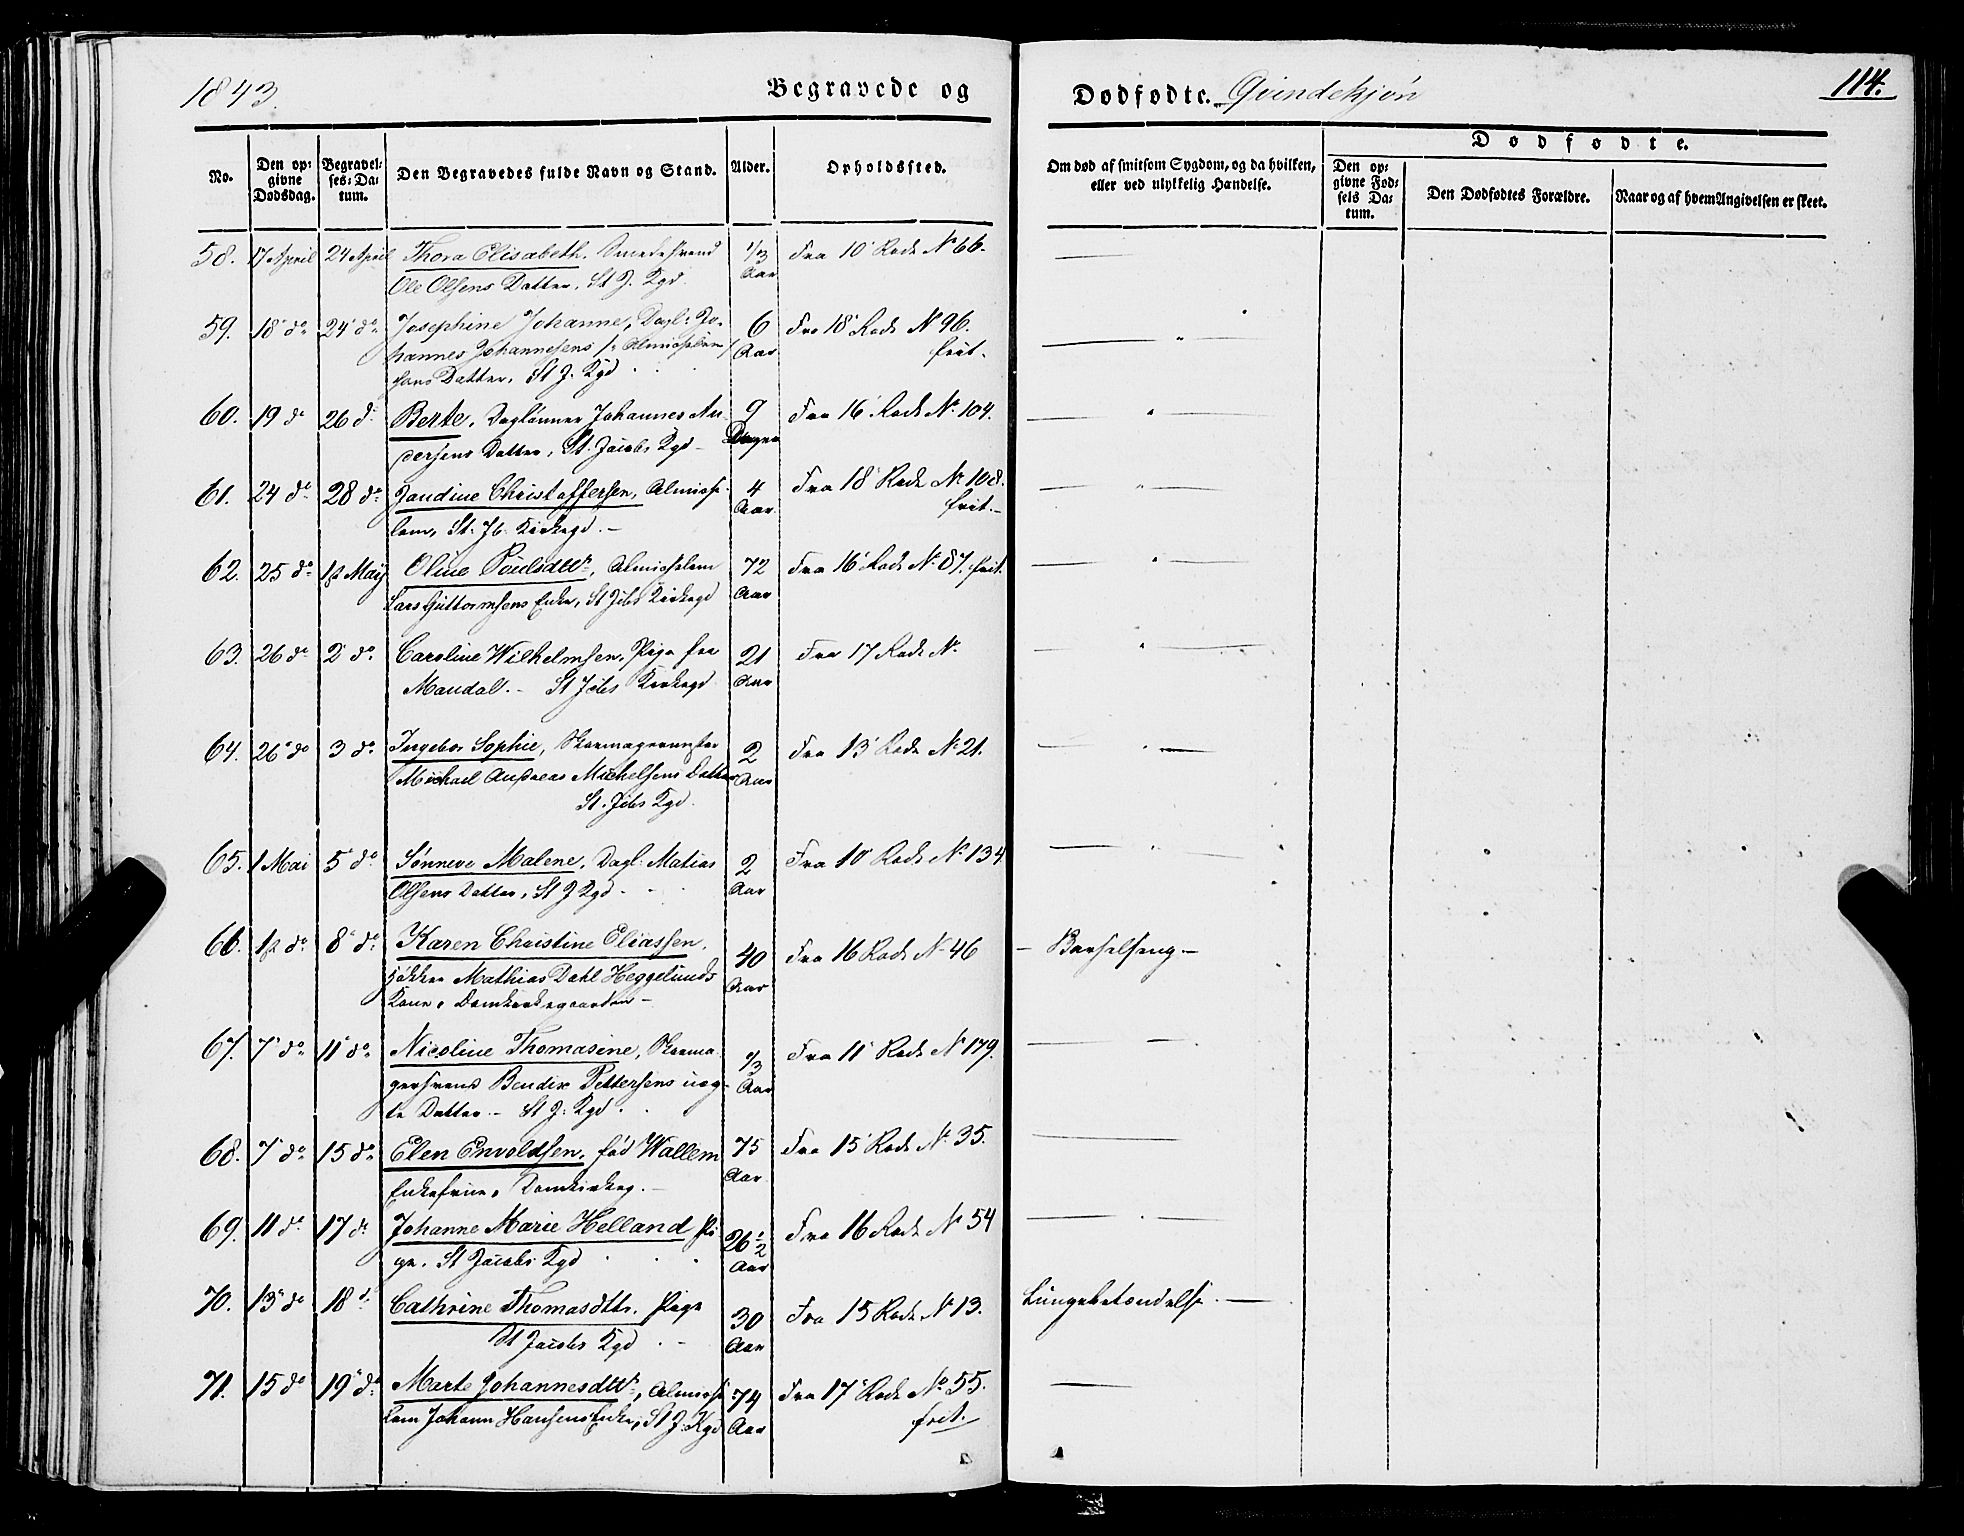 1843.
Begravede og
Dødfødte. Qvindekjøn
114.
No.
Den op-
givne
Dødsdag.
Begravel-
ses-Da-
tum.
Den Begravedes fulde Navn og Stand.
Alder.
Opholdssted.
Om død af smitsom Sygdom, og da hvilken,
eller ved ulykkelig Hændelse.
Dødfødte.
Den op-
givne Fød-
sels Da-
tum.
Den Dødfødtes Forældre.
Naar og af hvem Angivelsen er skeet.
58. 17 April 24 April Thora Elisabeth, Smedesvend 1/3 Fra 10' Rode No 66.
Ole Olsens Datter, St J. Kgd. Aar
59. 18' do 24' do Josephine Johanne, Dagl: Jo- 6 Fra 18' Rode No 96.
hannes Johannesens /: Almisselem / Aar frit.
Datter, St J. Kgd
60. 19 do 26 do Berte, Daglönner Johannes An- 9 Fra 16' Rode No 104.
dersens Datter, St. Jacobs Kgd - Dage
61. 24 do 28 do Jandine Christoffersen, Almisse- 4 Fra 18' Rode No 108.
lem, St. Jb. Kirkegd. - Aar frit.-
62. 25 do 1st May Oline Poulsdttr, Almisselem 72 Fra 16' Rode No 87. frit.
Lars Guttormsens Enke, St Jcbs Kirkegd Aar
63. 26 do 2' do Caroline Wilhelmsen, Pige fra 21 Fra 17 Rode No
Mandal. - St Jcbs Kirkegd Aar
64. 26' do 3 do Ingebor Sophie, Skomagermester 2 Fra 13' Rode No 21.
Michael Andreas Michelsens Datter Aar
St. Jcbs Kgd.
65. 1 Mai 5' do Sönneve Malene, Dagl: Matias 2 Fra 10' Rode No 134
Olsens Datter, St J Kgd - Aar
66. 1st do 8' do Karen Christine Eliassen, 40 Fra 16 Rode No 46 - Barselseng -
Mathias Dahl Heggelunds Aar
Kone, Domkirkegaarden -
67. 7' do 11' do Nicoline Thomasine, Skoma- 1/3 Fra 11' Rode No 179.
gersvend Bendix Pettersens uæg- Aar
te Datter - St J. Kgd.
68. 7' do 15 do Elen Envoldsen, fød Wallem 75 Fra 15' Rode No 35.
Enkefrue, Domkirkeg. - Aar
69. 11 do 17 do Johanne Marie Helland Pi- 26 1/2 Fra 16 Rode No 54
ge, St Jacobs Kgd Aar
70. 13' do 18 do Cathrine Thomasdttr, Pige 30 Fra 15 Rode No 13. Lungebetændelse. -
St Jacobs Kgd Aar
71. 15 do 19' do Marte Johannesdttr, Almisse- 74 Fra 17' Rode No 55.
lem Johann Hansens Enke, St J. Kgd Aar frit.